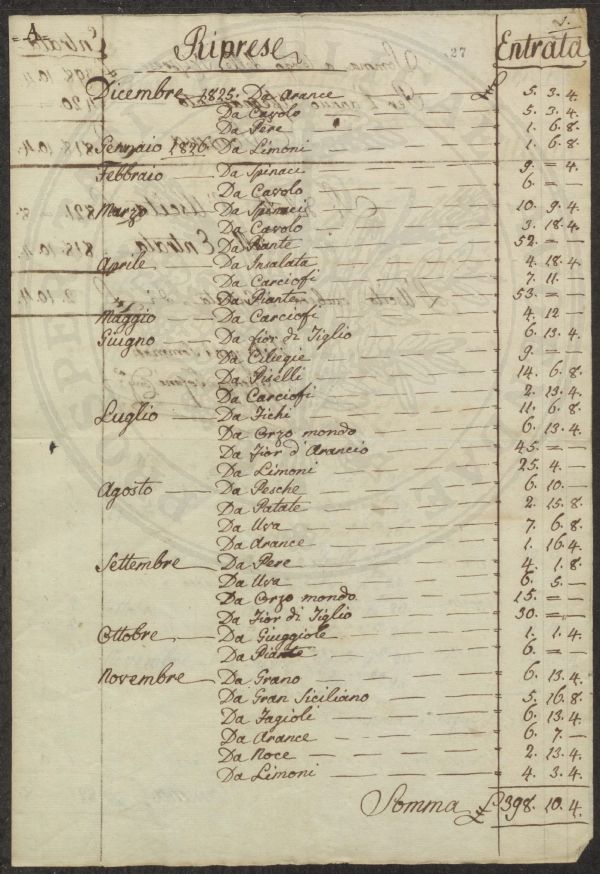 A
Riprese 27 Entrata
Dicembre 1825. Da Arance 5. 3. 4.
Da Cavolo 5. 3. 4.
Da Pere 1. 6. 8.
Gennaio 1826 Da Limoni 1. 6. 8.
Febbraio Da Spinaci 9. = 4.
Da Cavolo 6. = —
Marzo Da Spinaci 10. 9. 4.
Da Cavolo 3. 18. 4.
Da Piante 52. = —
Aprile Da Insalata 4. 18. 4.
Da Carciofi 7. 11. —
Da Piante 53. = —
Maggio Da Carciofi 4. 12 —
Giugno Da fior di Tiglio 6. 13. 4.
Da Ciliegie 9. = —
Da Piselli 14. 6. 8.
Da Carciofi 2. 13. 4.
Luglio Da Fichi 11. 6. 8.
Da Orzo mondo 6. 13. 4.
Da Fior d'Arancio 45. = —
Da Limoni 25. 4. —
Agosto Da Pesche 6. 10. —
Da Patate 2. 15. 8.
Da Uva 7. 6. 8.
Da Arance 1. 16. 4.
Settembre Da Pere 4. 1. 8.
Da Uva 6. 5. —
Da Orzo mondo 15. = —
Da Fior di Tiglio 30. = —
Ottobre Da Giuggiole 1. 1. 4.
Da Piante 6. = —
Novembre Da Grano 6. 13. 4.
Da Gran Siciliano 5. 16. 8.
Da Fagioli 6. 13. 4.
Da Arance 6. 7. —
Da Noce 2. 13. 4.
Da Limoni 4. 3. 4.
Somma £ 398. 10. 4.